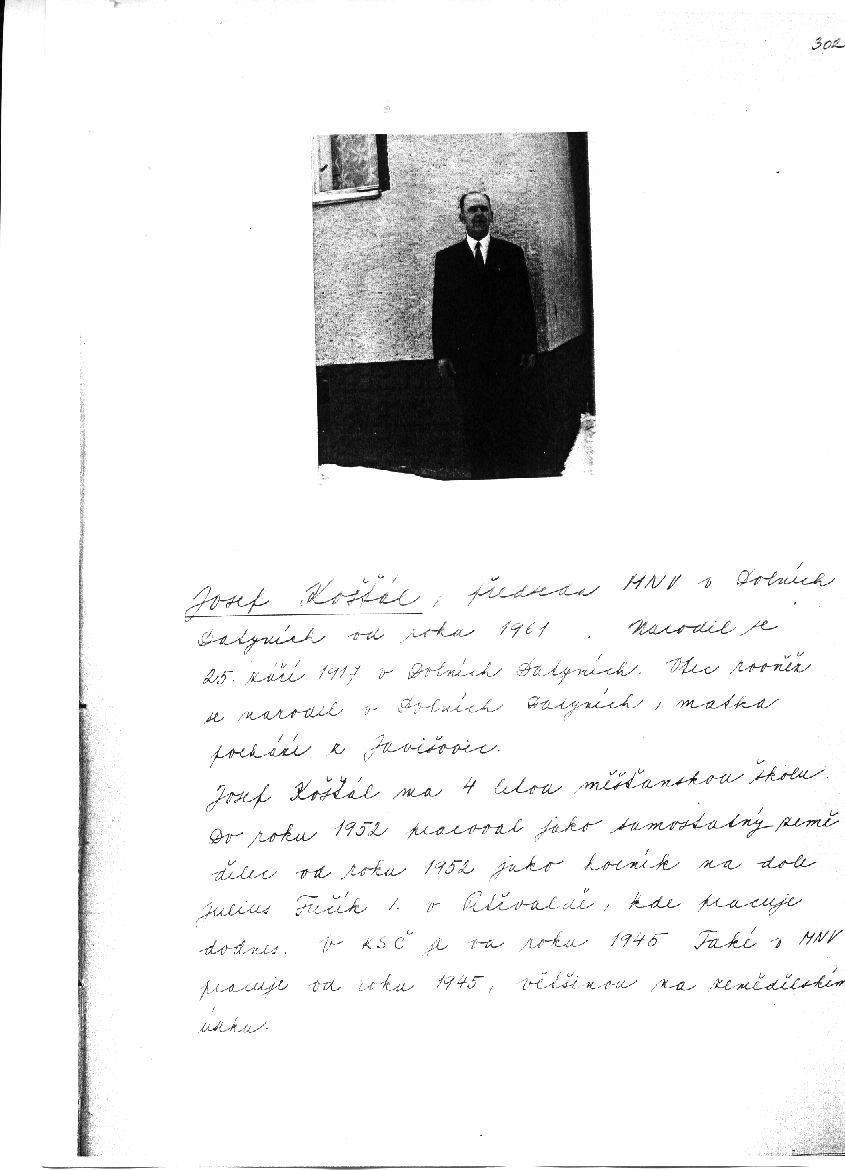 302
Josef Košťál, předseda MNV v Dolních
Datyních od roku 1961. Narodil se
25. září 1917 v Dolních Datyních. Otec rovněž
se narodil v Dolních Datyních, matka
pochází z Javišovic.
Josef Košťál ma 4 letou měšťanskou školu.
Do roku 1952 pracoval jako samostatný země
dělec od roku 1952 jako horník na dole
Julius Fučík 1. v Petřvaldě, kde pracuje
dodnes. V KSČ je od roku 1945 Také v MNV
pracuje od roku 1945, většinou na zemědělském
úseku.